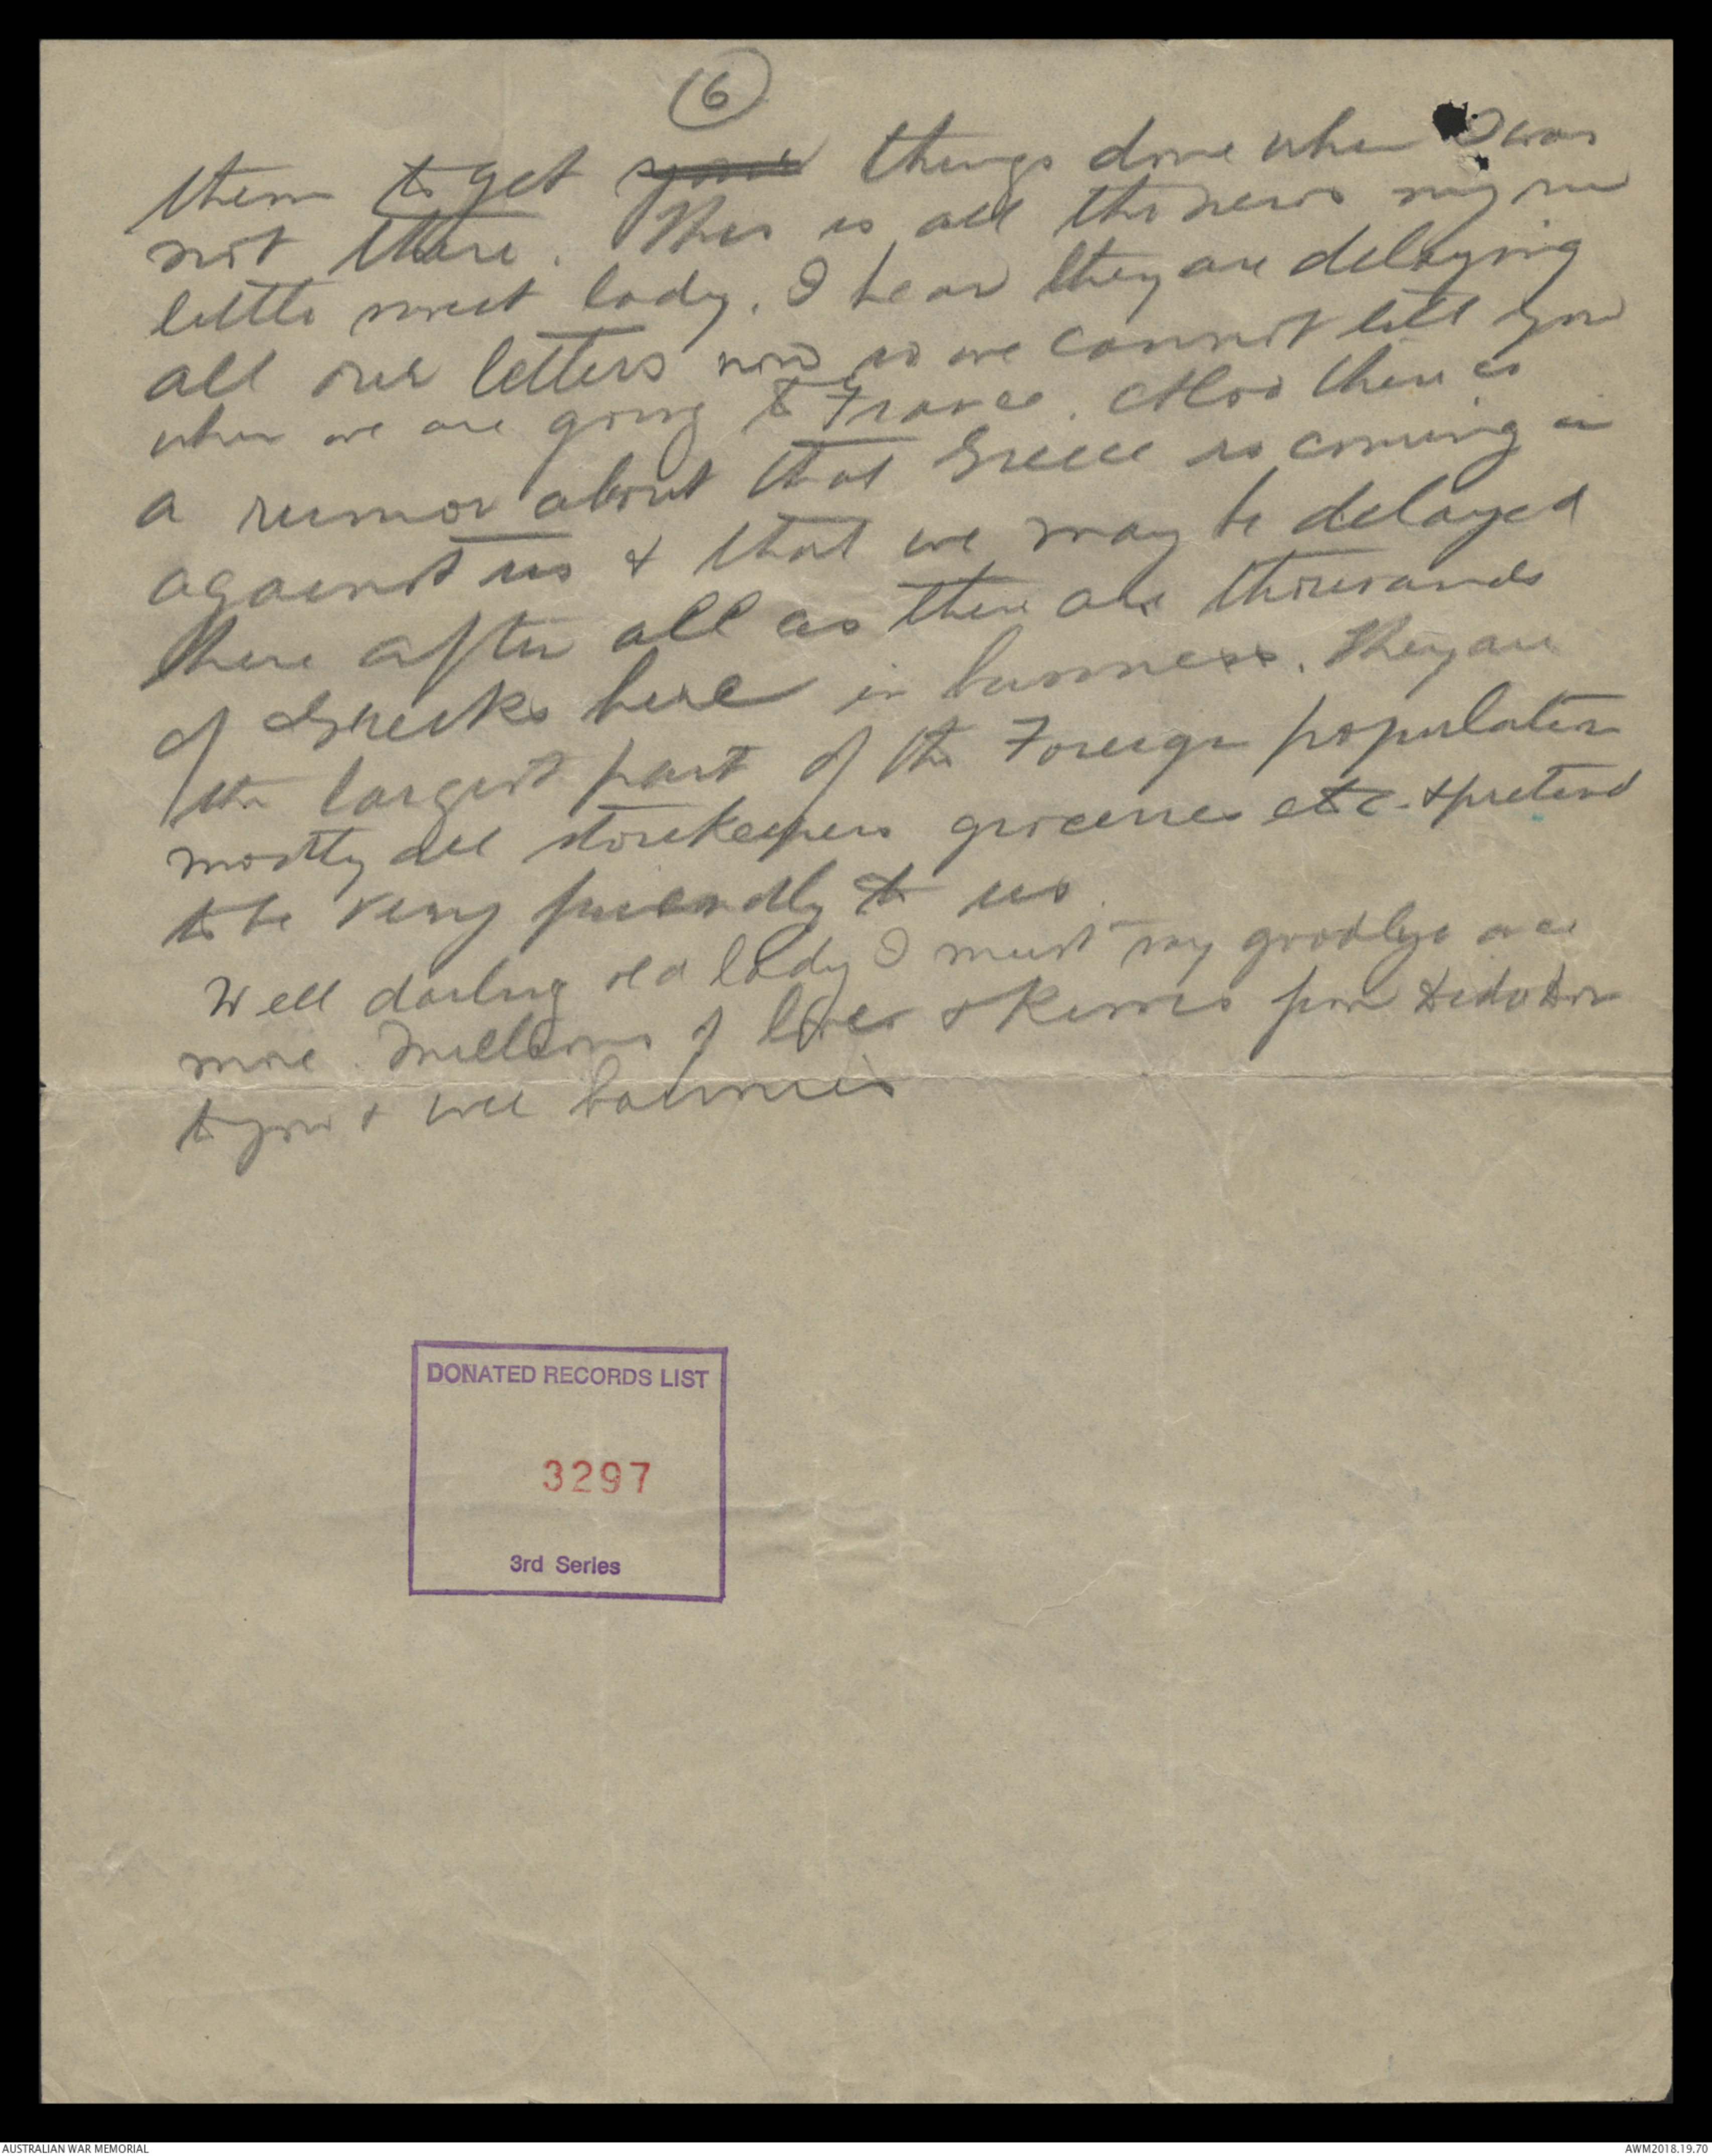 (6)
them to get things done when I was
not there. This is all the news my own
little sweet lady. I hear they are delaying
all our letters now so we cannot tell you
when we are going to France. Also there is
a rumor about that Greece is coming in
against us & that we may be delayed
here after all as there are thousands
of Greeks here in business. They are
the largest part of the Foreign population
mostly all storekeepers groceries etc. & pretend
to be very friendly to us.
Well darling old lady I must say goodbye once
more. Millions of loves & kisses from
to you & wee bonnies
DONATED RECORDS LIST
3297
3rd Series
AUSTRALIAN WAR MEMORIAL
AWM2018.19.70